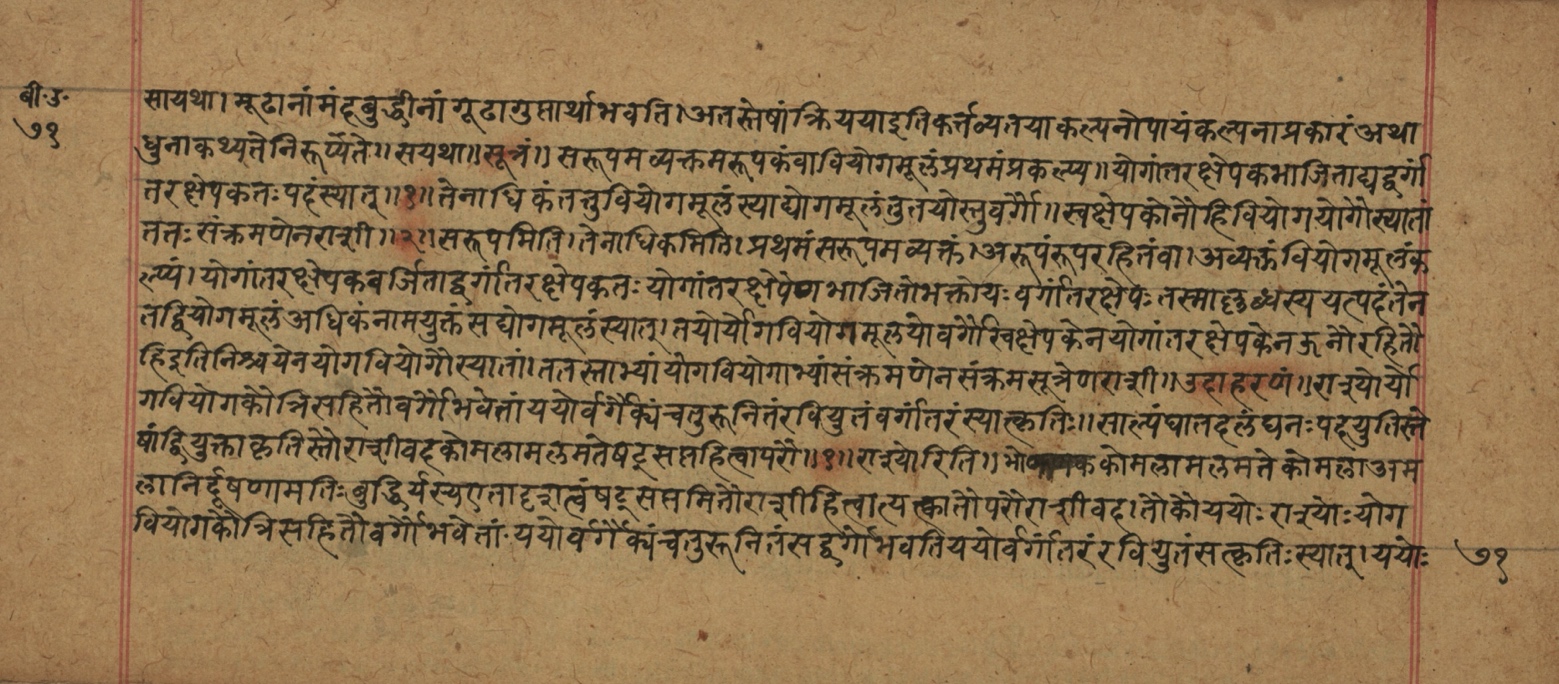 बी.उ.
७१
सायथा। मूढानांमंदबुद्धीनां गूढागुप्तार्थाभवति। अतस्तेषांक्रिययाइतिकर्त्तव्यतयाकल्पनोपायंकल्पनाप्रकारंअथा
धुनाकथ्यतेनिरूप्यते॥ सयथा॥ सूत्रं॥ सरूपमव्यक्तमरूपकंवावियोगमूलंप्रथमंप्रकल्प्य॥ योगांतरक्षेपकभाजिताद्यद्वर्गां
तरक्षेपकतःपदंस्यात्॥१॥ तेनाधिकंतत्तुवियोगमूलंस्याद्योगमूलंतुतयोस्तुवर्गौ॥ स्वक्षेपकोनौहिवियोगयोगौस्यातां
ततःसंक्रमणेनराशी॥२॥ सरूपमिति। तेनाधिकमिति। प्रथमंसरूपमव्यक्तं। अरूपंरूपरहितंवा। अव्यक्तंवियोगमूलंक
ल्प्यं। योगांतरक्षेपकवर्जिताद्वर्गांतरक्षेपकतः योगांतरक्षेपेणभाजितोभक्तोयःवर्गांतरक्षेपःतस्माल्लब्धस्ययत्पदंतेन
तद्वियोगमूलंअधिकंनामयुक्तंसद्योगमूलंस्यात्। तयोर्योगवियोगमूलयोवर्गौस्वक्षेपकेनयोगांतरक्षेपकेनऊनौरहितौ
हिइतिनिश्चयेनयोगवियोगौस्यातां। ततस्ताभ्यांयोगवियोगाभ्यांसंक्रमणेनसंक्रमसूत्रेणराशी॥ उदाहरणं॥ राश्योर्यो
गवियोगकौत्रिसहितौवर्गौभवेतांययोर्वर्गैक्यंचतुरूनितंरवियुतंवर्गांतरंस्यात्कृतिः॥ साल्पंघातदलंघनःपदयुतिस्ते
षांद्वियुक्ताकृतिस्तौराशीवदकोमलामलमतेषट्सप्तहित्वापरौ॥१॥ राश्योरिति॥ भो ककोमलामलमतेकोमलाअम
लानिर्दूषणामतिःबुद्धिर्यस्यएतादृशत्वंषट्सप्तमितौराशीहित्वात्यक्त्कातौपरौराशीवद। तौकौययोः राश्योःयोग
वियोगकौत्रिसहितौवर्गौभवेतां ययोर्वर्गैक्यंचतुरूनितंसद्वर्गोभवतिययोर्वर्गांतरंरवियुतंसत्कृतिःस्यात्। ययोः
७१